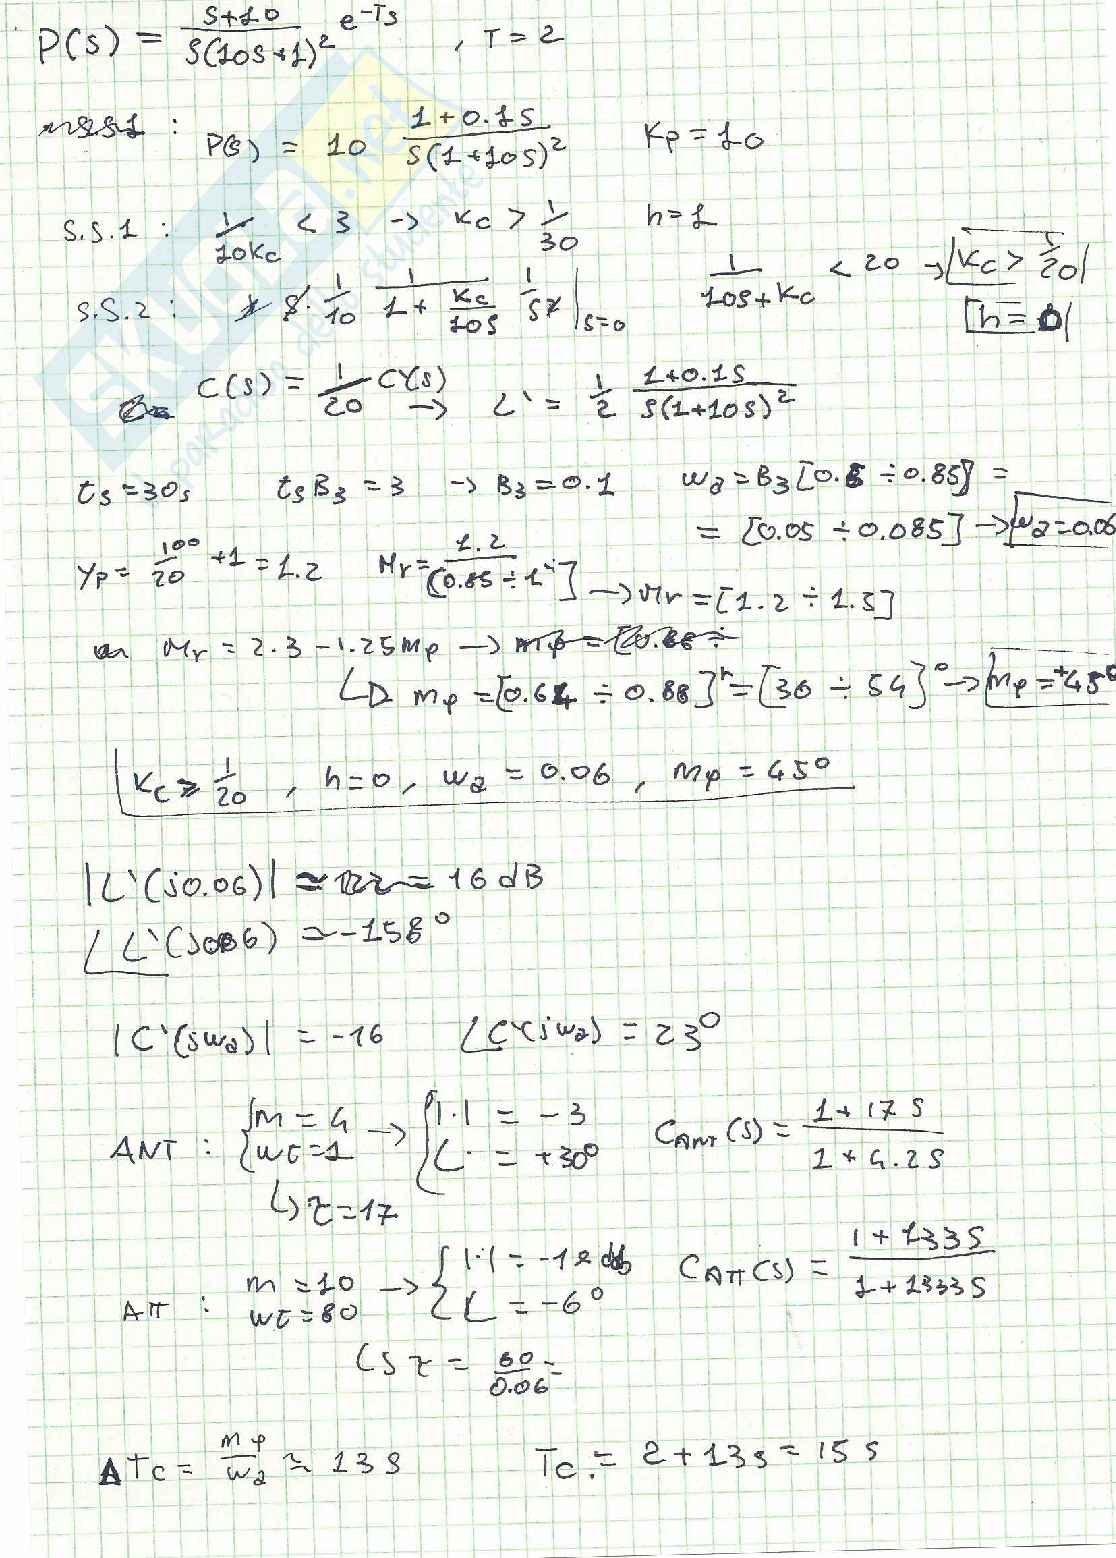 P(s) = (s+10)/(s(10s+1)²) e^-Ts , T = 2
P(s) = 10 (1+0.1s)/(s(1+10s)²) Kp = 10
s.s.1 : 1/(10Kc) < 3 → Kc > 1/30 h=1
1/(10s+Kc) < 20 → Kc > 1/20
s.s.2 : s · 1/10 · 1/(1 + Kc/(10s)) · 1/s² |s=0 h = 0
C(s) = 1/20 C'(s) → L' = 1/2 (1+0.1s)/(s(1+10s)²)
ts = 30s ts B3 = 3 → B3 = 0.1 wa = B3 [0.5 ÷ 0.85] =
= [0.05 ÷ 0.085] → wa = 0.06
Yp = 100/20 + 1 = 1.2 Mr = 1.2/[0.85 ÷ 1] → Mr = [1.2 ÷ 1.5]
Mr = 2.3 - 1.25mφ →
↳ mφ = [0.64 ÷ 0.88]^r = [36 ÷ 54]° → mφ = 45°
Kc ≥ 1/20 , h = 0 , wa = 0.06 , mφ = 45°
|L'(j0.06)| ≃ = 16 dB
∠L'(j0.06) ≃ -158°
|C'(jwa)| = -16 ∠C'(jwa) = 23°
ANT : { m = 4 wτ = 1 → { |·| = -3 ∠· = +30° C_ANT(s) = (1+17s)/(1+4.2s)
↳ τ = 17
ATT : m = 10 wτ = 80 → { |·| = -19 db ∠ = -6° C_ATT(s) = (1+133s)/(1+1333s)
↳ τ = 80/0.06 =
ΔTc = mφ/wa ≃ 13s Tc = 2 + 13s = 15s